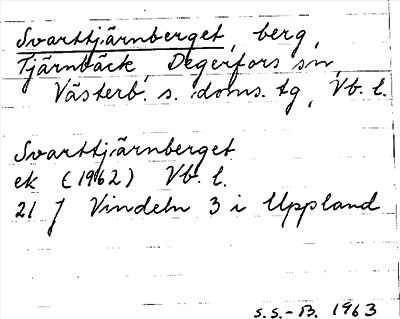 Svarttjärnberget, berg,
Tjärnbäck, Degerfors sn,
Västerb. s. doms. tg, Vb. l.
Svarttjärnberget
ek (1962) Vb. l.
21 J Vindeln 3 i Uppland
S.S.-B. 1963